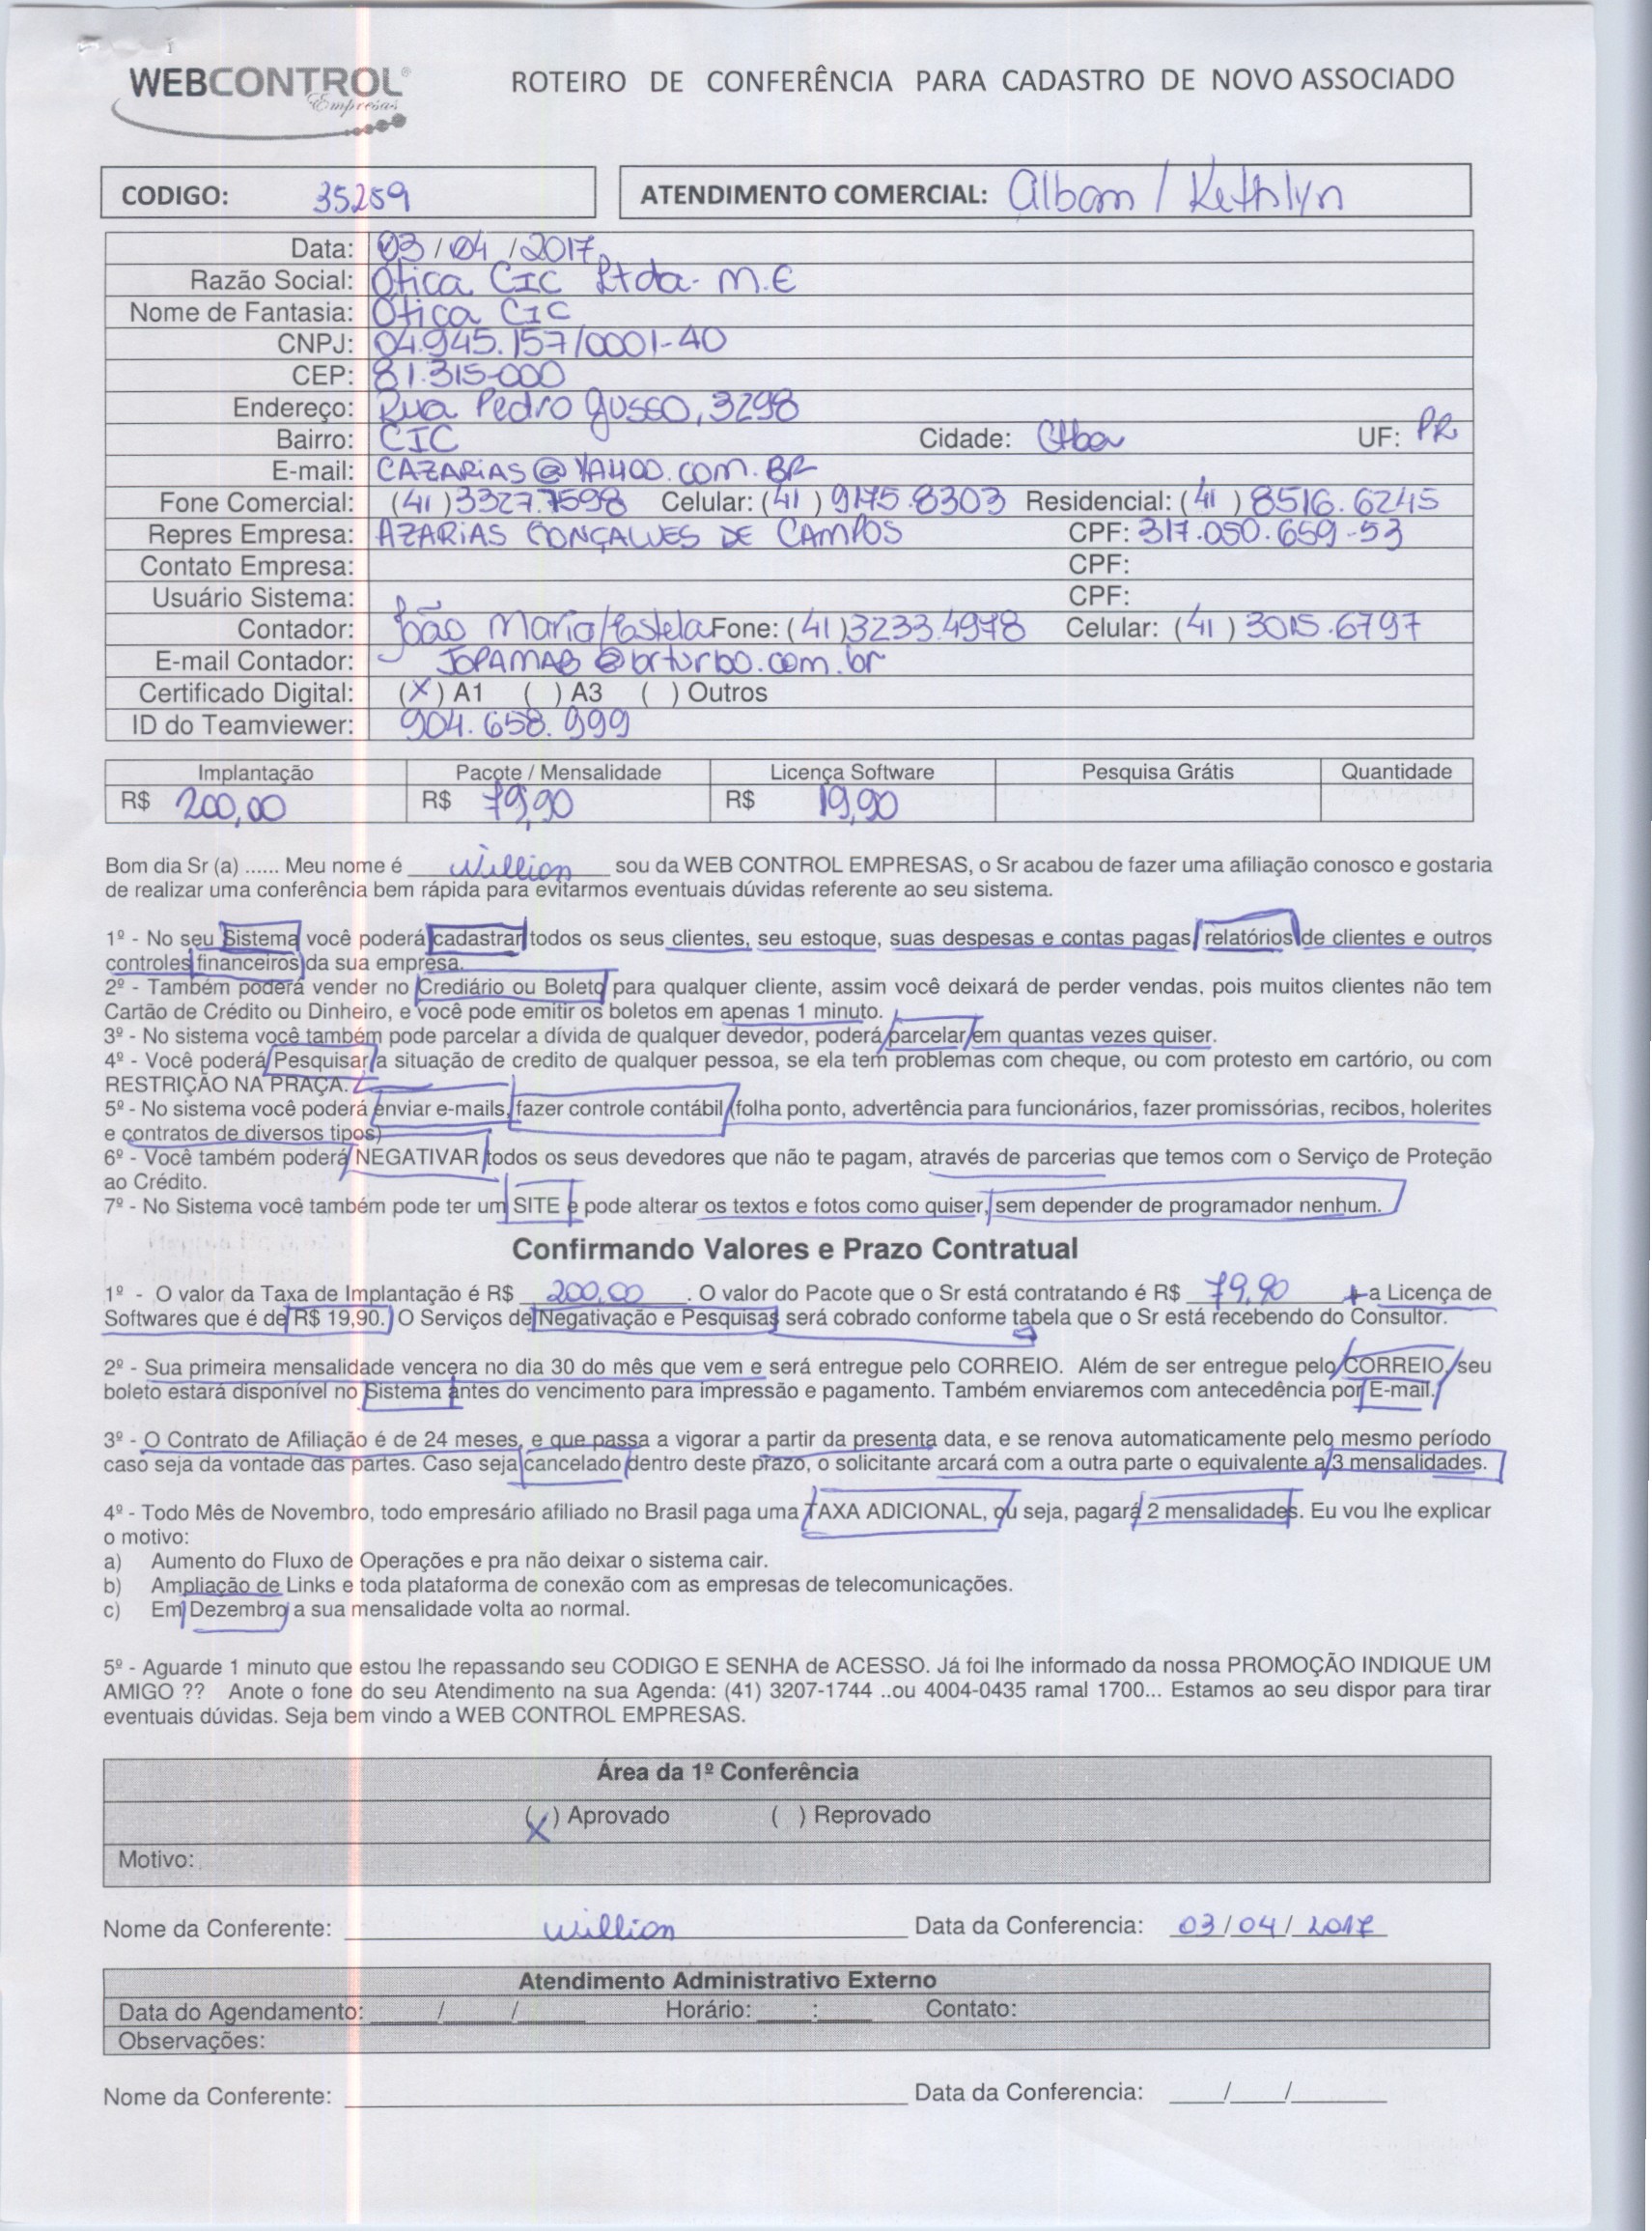 WEBCONTROL®
Empresas
ROTEIRO DE CONFERÊNCIA PARA CADASTRO DE NOVO ASSOCIADO
CODIGO: 35259
ATENDIMENTO COMERCIAL: Albam / Kethlyn
Data: 03/04/2017
Razão Social: Ótica CIC Ltda - M.E
Nome de Fantasia: Ótica CIC
CNPJ: 04.945.157/0001-40
CEP: 81.315-000
Endereço: Rua Pedro Gusso, 3298
Bairro: CIC Cidade: Ctba UF: PR
E-mail: CAZARIAS@YAHOO.COM.BR
Fone Comercial: (41) 3327.7598 Celular: (41) 9145.8303 Residencial: (41) 8516.6245
Repres Empresa: AZARIAS GONÇALVES DE CAMPOS CPF: 317.050.659-53
Contato Empresa: CPF:
Usuário Sistema: CPF:
Contador: João Maria/Estela Fone: (41) 3233.4978 Celular: (41) 3015.6797
E-mail Contador: JOPAMAB@brturbo.com.br
Certificado Digital: (X) A1 ( ) A3 ( ) Outros
ID do Teamviewer: 904.658.999
Implantação Pacote / Mensalidade Licença Software Pesquisa Grátis Quantidade
R$ 200,00 R$ 79,90 R$ 19,90
Bom dia Sr (a) ...... Meu nome é Willian sou da WEB CONTROL EMPRESAS, o Sr acabou de fazer uma afiliação conosco e gostaria
de realizar uma conferência bem rápida para evitarmos eventuais dúvidas referente ao seu sistema.
1º - No seu Sistema você poderá cadastrar todos os seus clientes, seu estoque, suas despesas e contas pagas, relatórios de clientes e outros
controles financeiros da sua empresa.
2º - Também poderá vender no Crediário ou Boleto para qualquer cliente, assim você deixará de perder vendas, pois muitos clientes não tem
Cartão de Crédito ou Dinheiro, e você pode emitir os boletos em apenas 1 minuto.
3º - No sistema você também pode parcelar a dívida de qualquer devedor, poderá parcelar em quantas vezes quiser.
4º - Você poderá Pesquisar a situação de credito de qualquer pessoa, se ela tem problemas com cheque, ou com protesto em cartório, ou com
RESTRIÇÃO NA PRAÇA.
5º - No sistema você poderá enviar e-mails, fazer controle contábil (folha ponto, advertência para funcionários, fazer promissórias, recibos, holerites
e contratos de diversos tipos)
6º - Você também poderá NEGATIVAR todos os seus devedores que não te pagam, através de parcerias que temos com o Serviço de Proteção
ao Crédito.
7º - No Sistema você também pode ter um SITE e pode alterar os textos e fotos como quiser, sem depender de programador nenhum.
Confirmando Valores e Prazo Contratual
1º - O valor da Taxa de Implantação é R$ 200,00. O valor do Pacote que o Sr está contratando é R$ 79,90 + a Licença de
Softwares que é de R$ 19,90. O Serviços de Negativação e Pesquisas será cobrado conforme tabela que o Sr está recebendo do Consultor.
2º - Sua primeira mensalidade vencera no dia 30 do mês que vem e será entregue pelo CORREIO. Além de ser entregue pelo CORREIO, seu
boleto estará disponível no Sistema antes do vencimento para impressão e pagamento. Também enviaremos com antecedência por E-mail.
3º - O Contrato de Afiliação é de 24 meses, e que passa a vigorar a partir da presenta data, e se renova automaticamente pelo mesmo período
caso seja da vontade das partes. Caso seja cancelado dentro deste prazo, o solicitante arcará com a outra parte o equivalente a 3 mensalidades.
4º - Todo Mês de Novembro, todo empresário afiliado no Brasil paga uma TAXA ADICIONAL, ou seja, pagará 2 mensalidades. Eu vou lhe explicar
o motivo:
a) Aumento do Fluxo de Operações e pra não deixar o sistema cair.
b) Ampliação de Links e toda plataforma de conexão com as empresas de telecomunicações.
c) Em Dezembro a sua mensalidade volta ao normal.
5º - Aguarde 1 minuto que estou lhe repassando seu CODIGO E SENHA de ACESSO. Já foi lhe informado da nossa PROMOÇÃO INDIQUE UM
AMIGO ?? Anote o fone do seu Atendimento na sua Agenda: (41) 3207-1744 ..ou 4004-0435 ramal 1700... Estamos ao seu dispor para tirar
eventuais dúvidas. Seja bem vindo a WEB CONTROL EMPRESAS.
Área da 1º Conferência
(X) Aprovado ( ) Reprovado
Motivo:
Nome da Conferente: Willian Data da Conferencia: 03/04/2017
Atendimento Administrativo Externo
Data do Agendamento: ____/____/____ Horário: ____:____ Contato:
Observações:
Nome da Conferente: ____ Data da Conferencia: ____/____/____